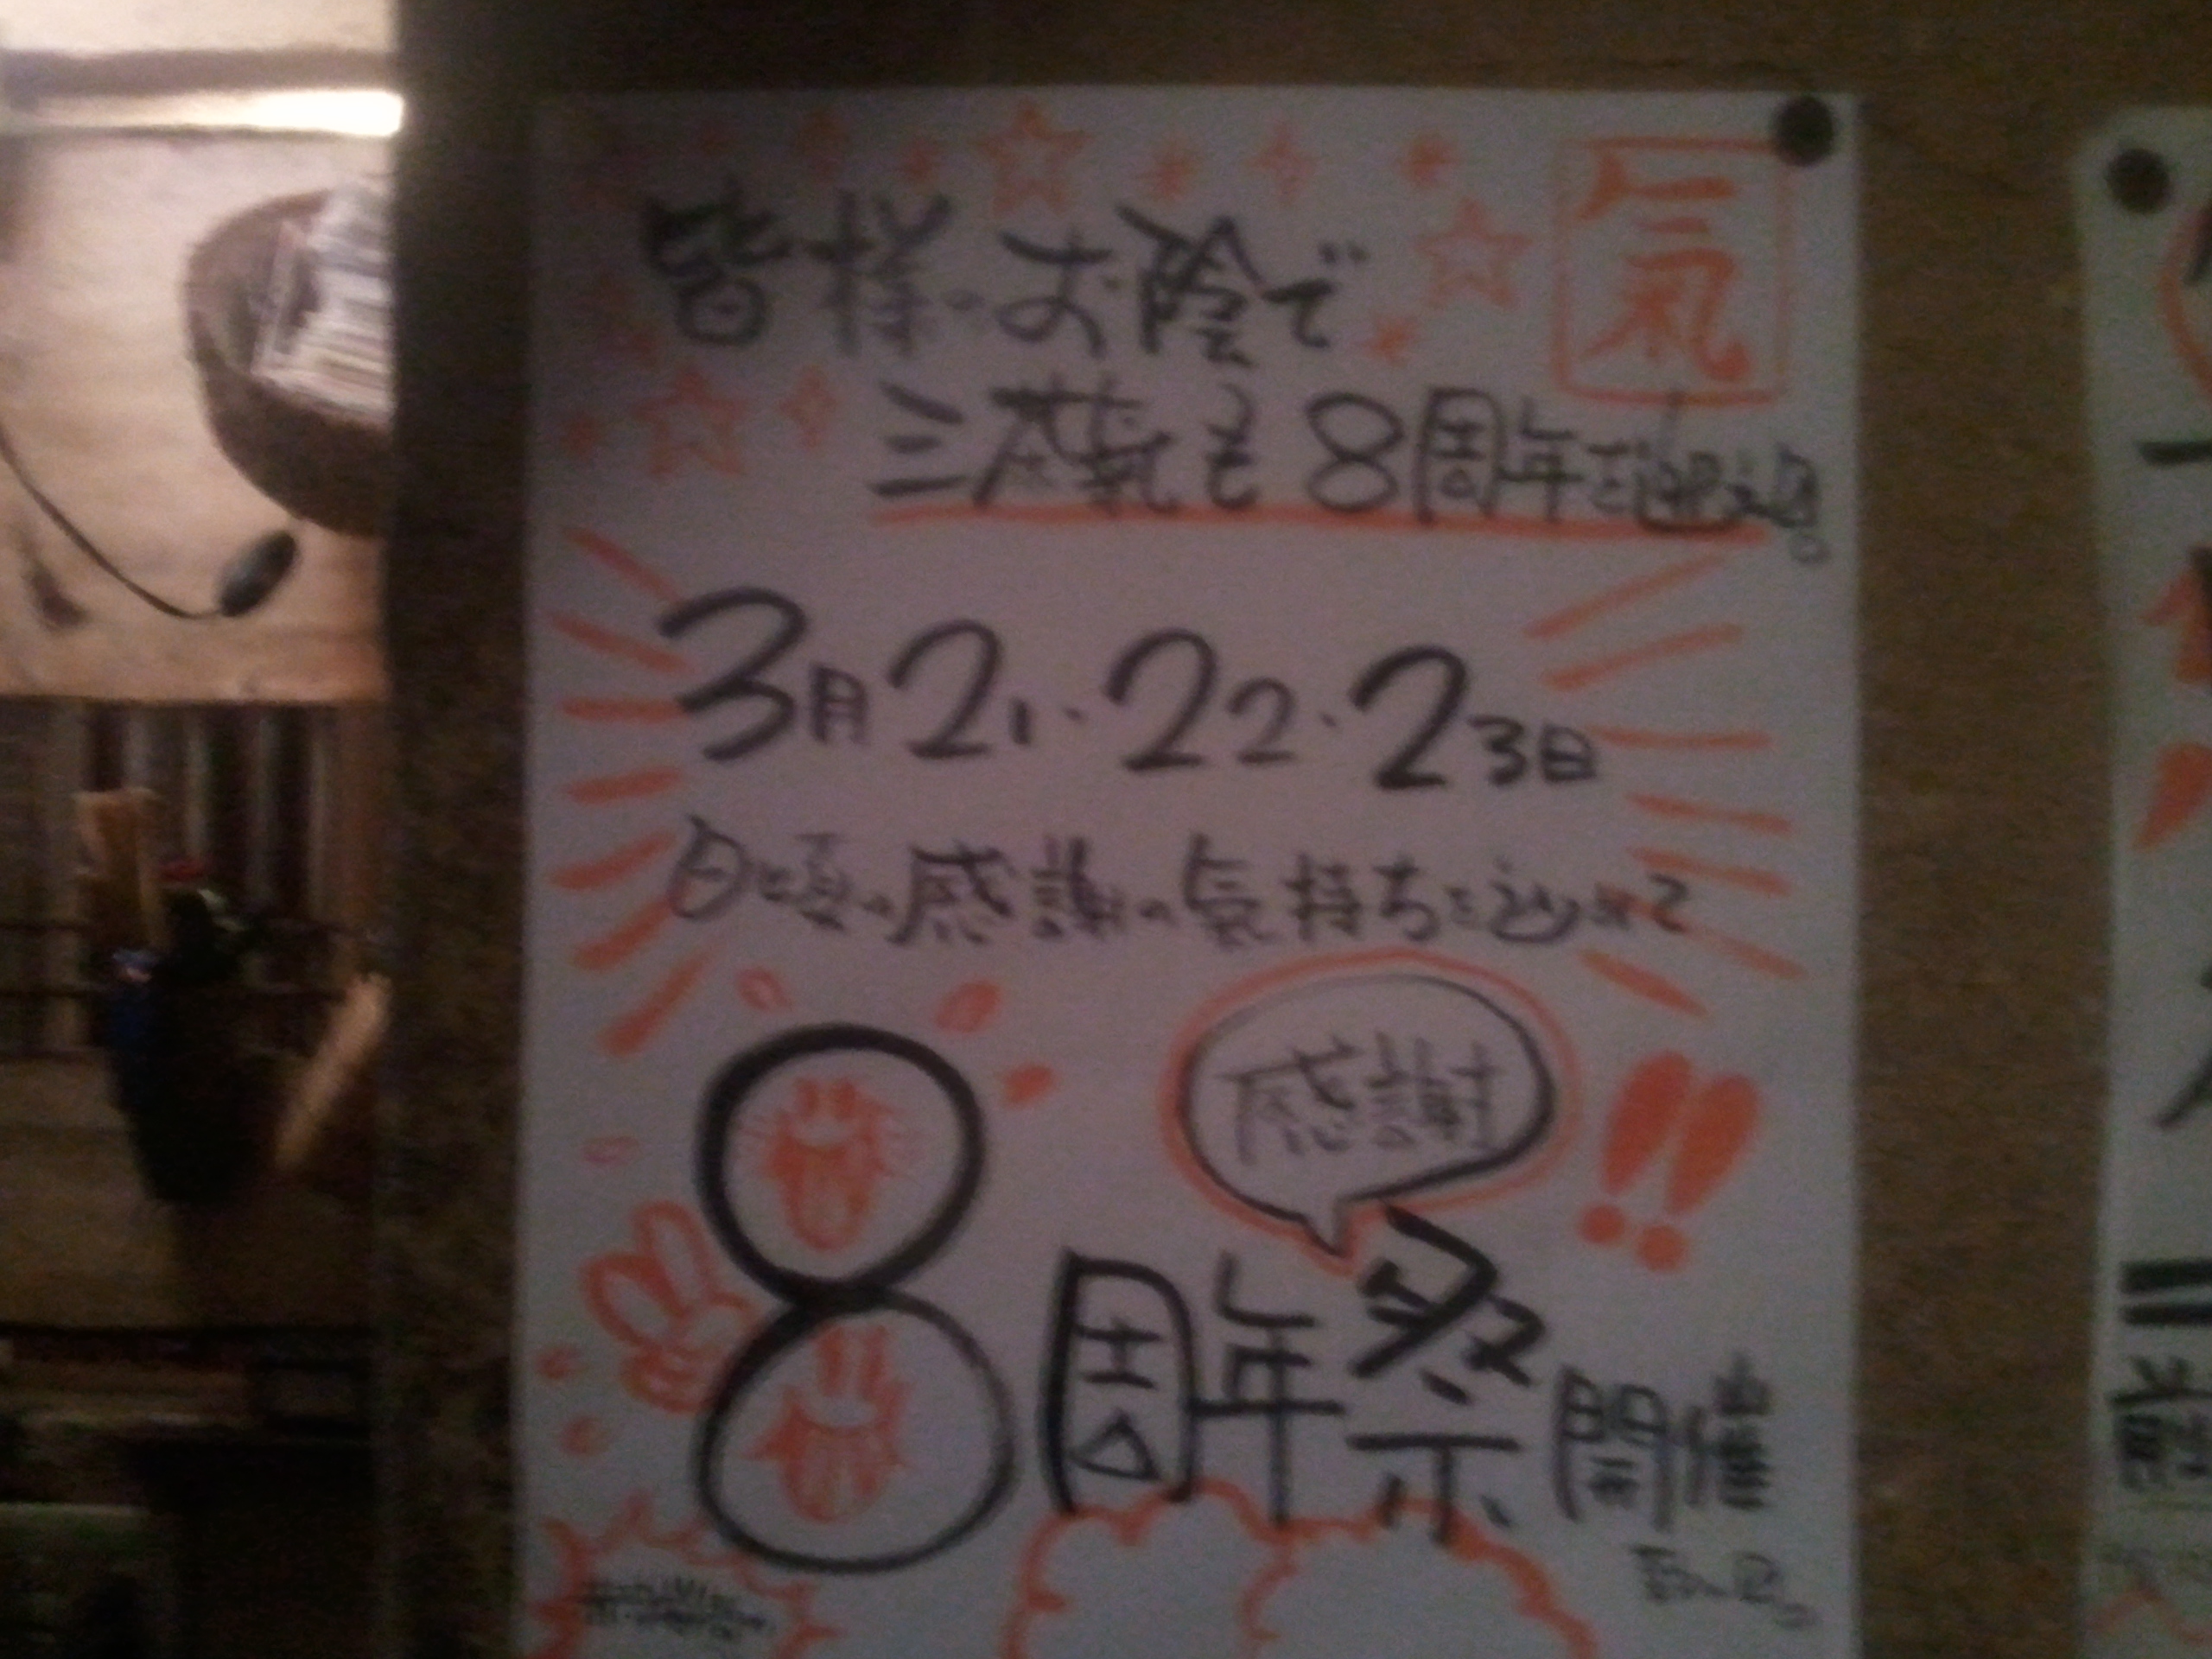 氣
皆様のお陰で
三燕氣も8周年を迎える。
3月21・22・23日
日頃の感謝の気持ちを込めて
感謝!!
8周年祭開催